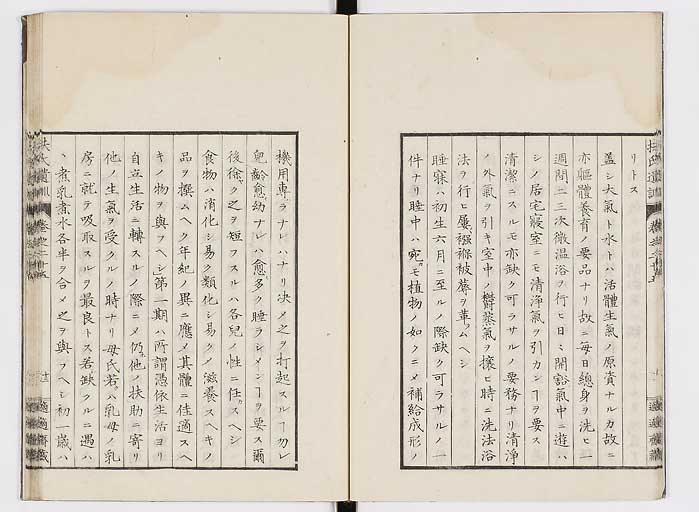 リトス
蓋シ大氣ト水トハ活體生氣ノ原資ナルカ故ニ
亦軀體養育ノ要品ナリ故ニ毎日總身ヲ洗ヒ一
週間二三次微温浴ヲ行ヒ日ミ開豁氣中ニ遊ハ
シノ居宅寢室ニモ清淨氣ヲ引カンヿヲ要ス
清潔ニスルモ亦缺ク可ラサルノ要務ナリ清淨
ノ外氣ヲ引キ室中ノ欝蒸氣ヲ攘ヒ時ニ洗法浴
法ヲ行ヒ屢襁褓被蓐ヲ革ムヘシ
睡寐ハ初生六月ニ至ルノ際缺ク可ラサルノ一
件ナリ睡中ハ宛モ植物ノ如クニメ補給成形ノ
機用専ラナレハナリ决メ之ヲ打起スルヿ勿レ
兒齡愈幼ナレハ愈多ク睡ラシメンヿヲ要ス爾
後徐ク之ヲ短フスルハ各兒ノ性ニ任スヘシ
食物ハ消化シ易ク類化シ易クノ滋養スヘキノ
品ヲ撰ムヘク年紀ノ異ニ應メ其體ニ佳適スヘ
キノ物ヲ與フヘシ第一期ハ所謂憑依生活ヨリ
自立生活ニ轉スルノ際ニメ仍他ノ扶助ニ寄リ
他ノ生氣ヲ受クルノ時ナリ母氏若ハ乳母ノ乳
房ニ就テ吸取スルヲ最良トス若缺クルニ遇ハ
、煮乳煮水各半ヲ合メ之ヲ與フヘシ初一歳ハ